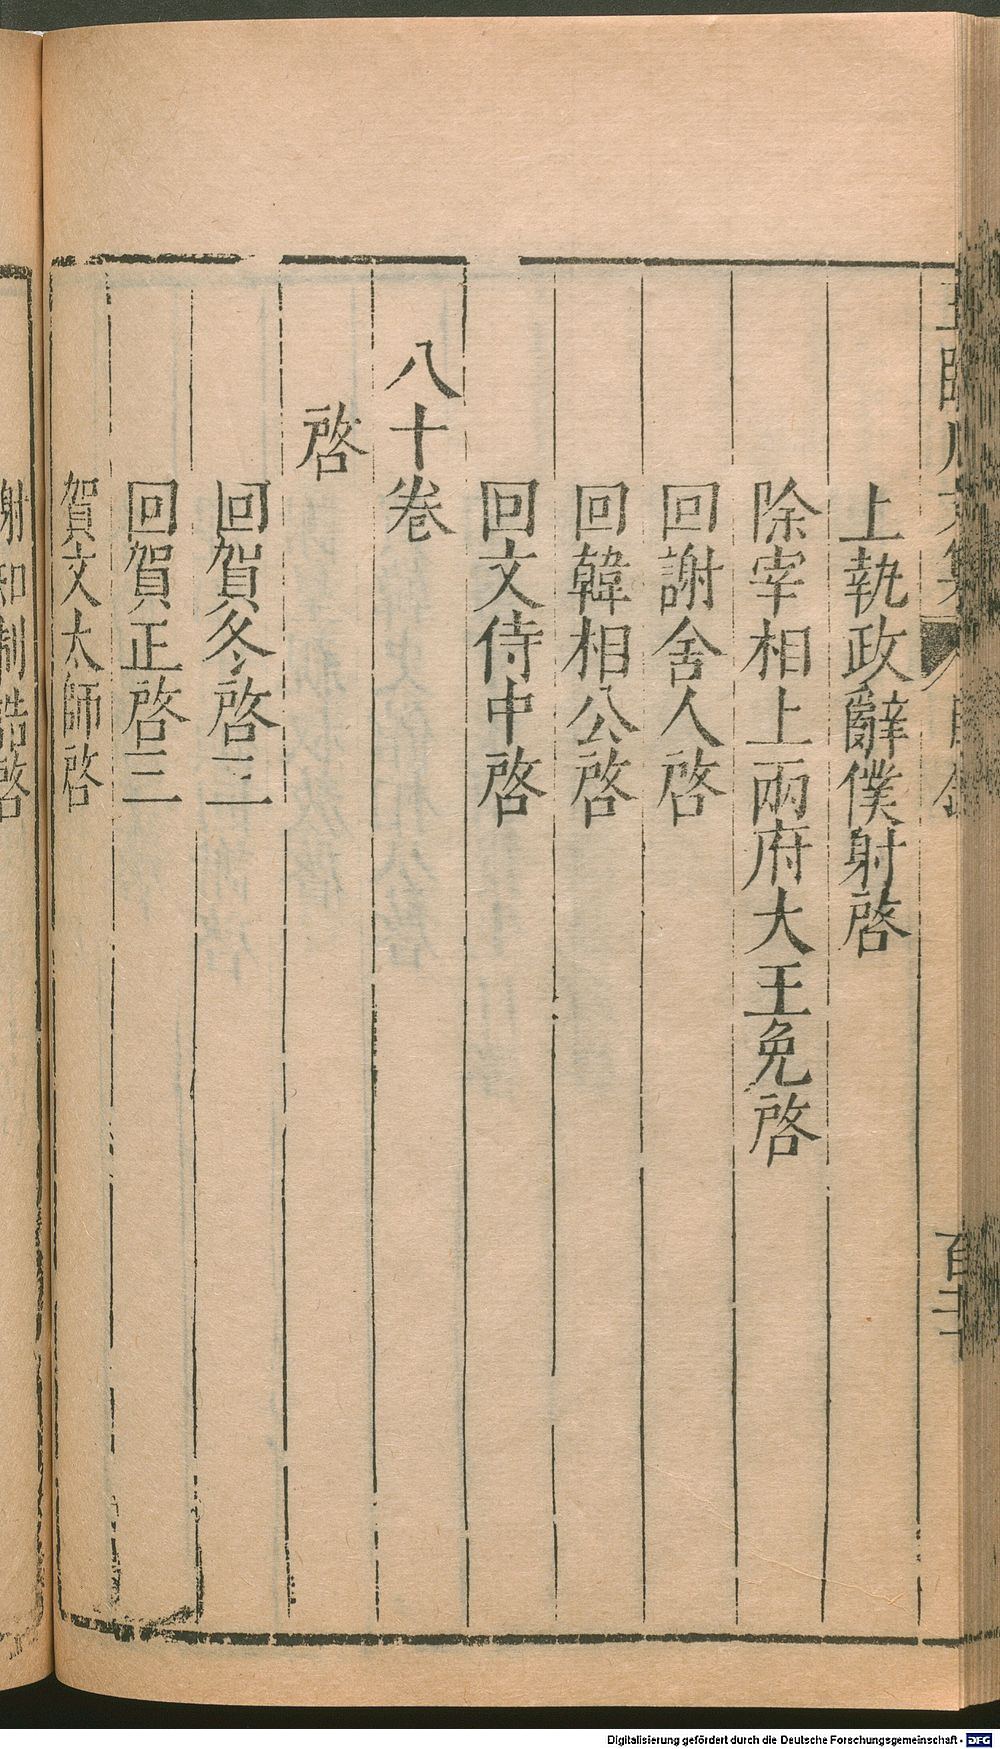 上執政辭僕射啓
除宰相上兩府大王免啓
回謝舍人啓
回韓相公啓
回文侍中啓
八十卷
啓
回賀冬啓三
回賀正啓三
賀文太師啓
謝知制誥啓
Digitalisierung gefördert durch die Deutsche Forschungsgemeinschaft - DFG